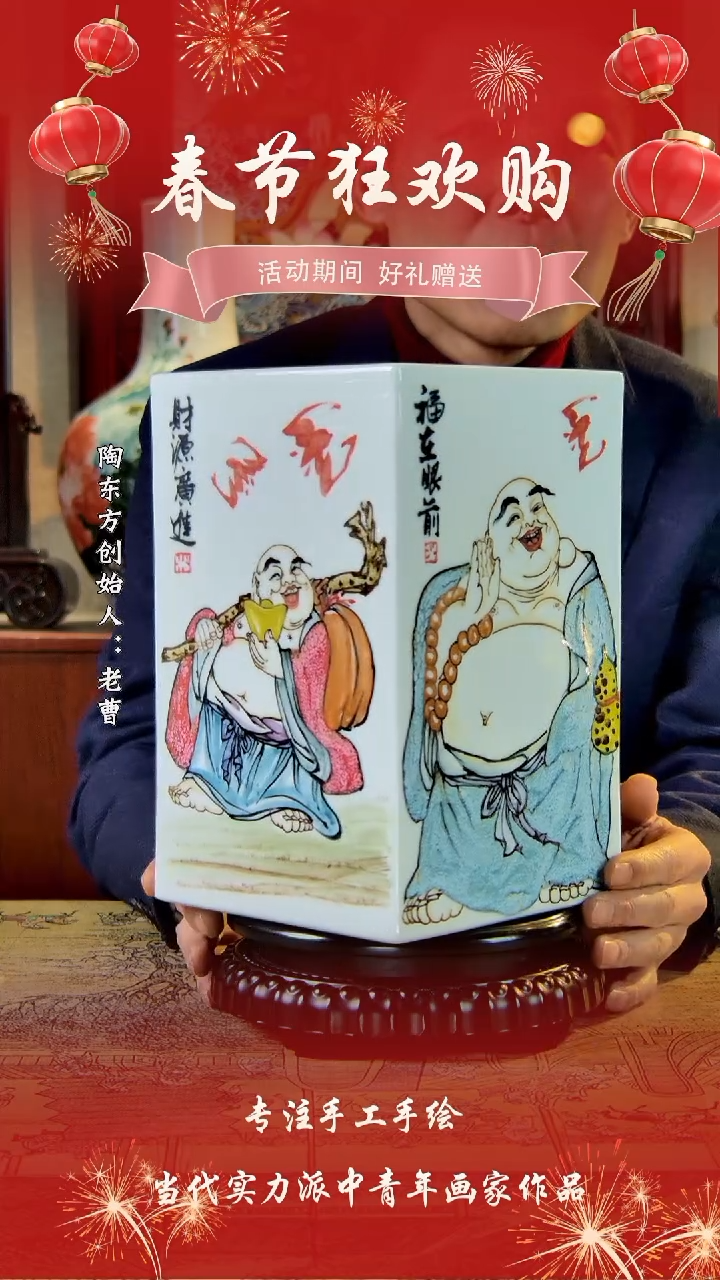 春节狂欢购
活动期间 好礼赠送
財源廣進
福在眼前
陶东方创始人：老曹
专注手工手绘
当代实力派中青年画家作品